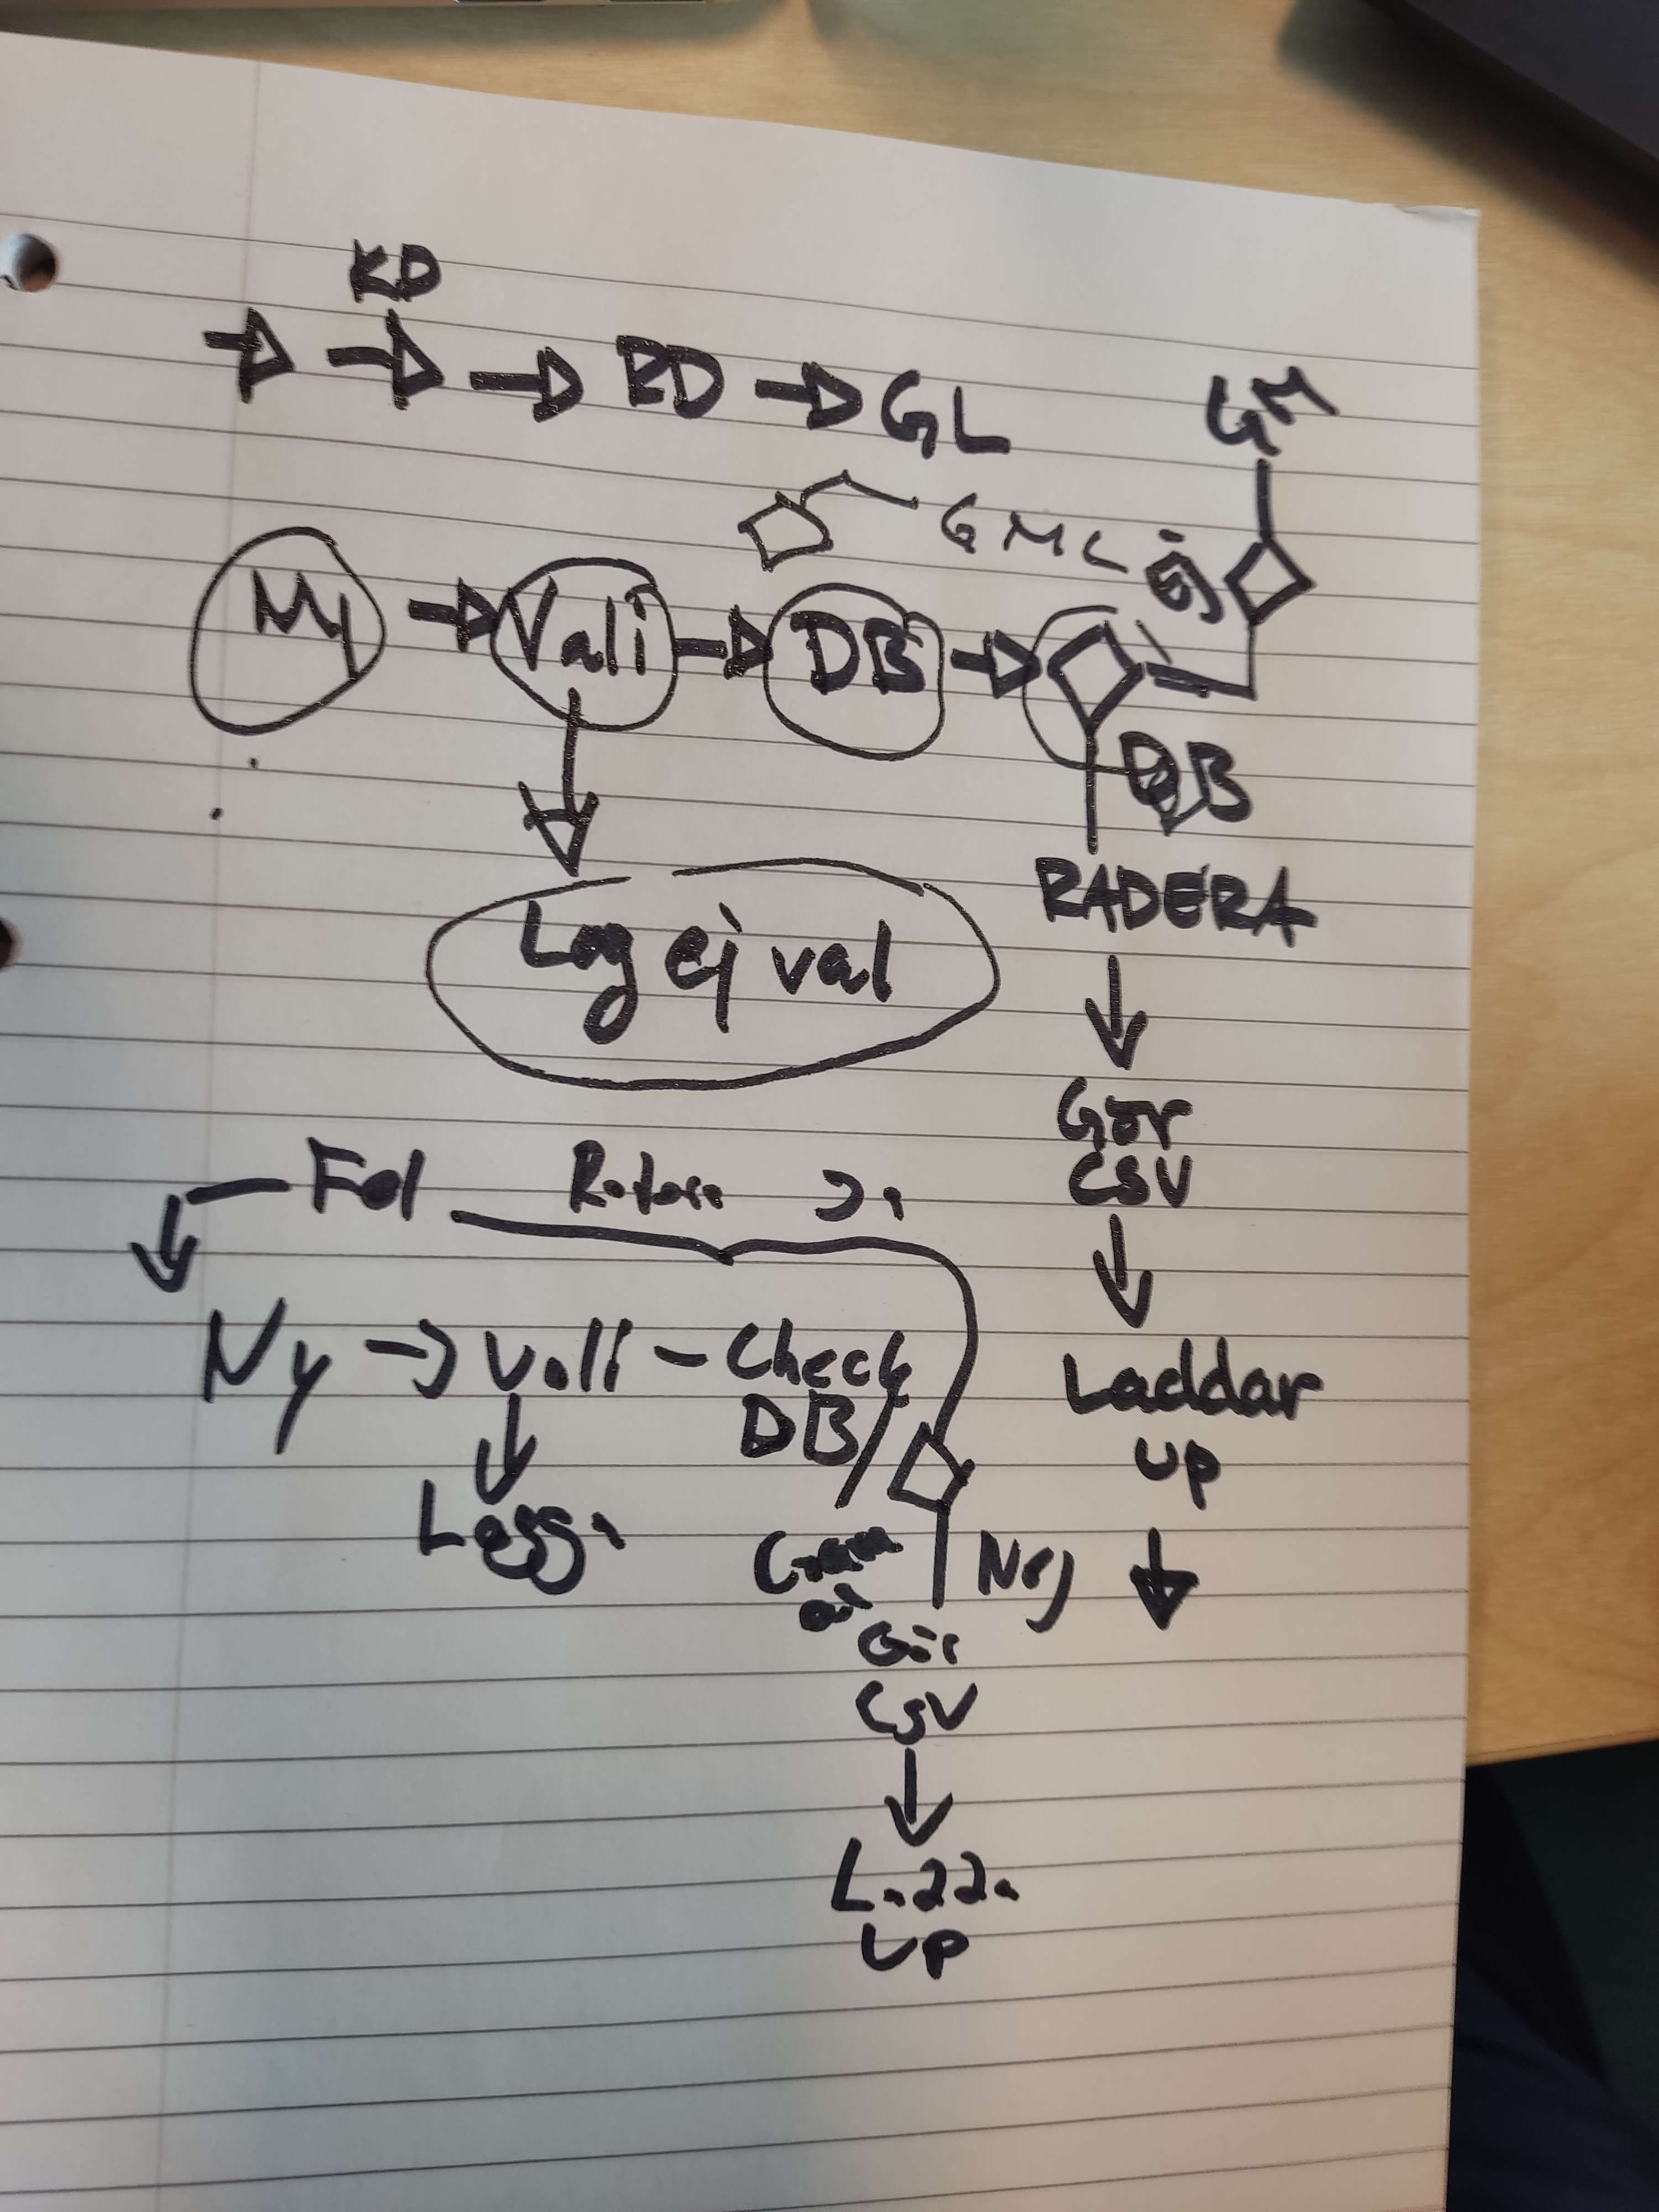 KD
RD GL
GM
GMC ej
Ny Vali DB
DB
RADERA
Log ej val
Gör
CSV
Fel
Ny Vali - Check
DB
Laddar
UP
Logga
Nej
Gör
CSV
Ladda
UP